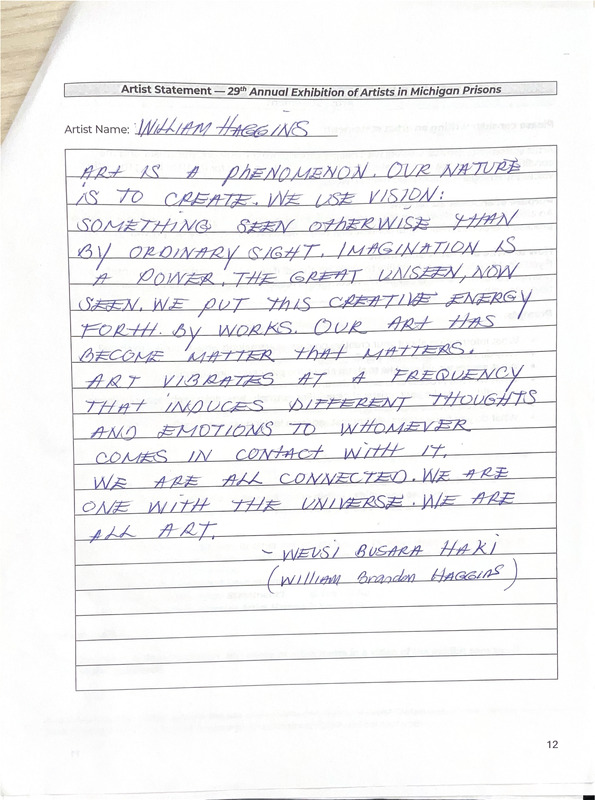 Artist Statement — 29th Annual Exhibition of Artists in Michigan Prisons
Artist Name: WILLIAM HAGGINS
ART IS A PHENOMENON. OUR NATURE
IS TO CREATE. WE USE VISION:
SOMETHING SEEN OTHERWISE THAN
BY ORDINARY SIGHT. IMAGINATION IS
A POWER. THE GREAT UNSEEN, NOW
SEEN. WE PUT THIS CREATIVE ENERGY
FORTH. BY WORKS. OUR ART HAS
BECOME MATTER that MATTERS.
ART VIBRATES AT A FREQUENCY
THAT INDUCES DIFFERENT THOUGHTS
AND EMOTIONS TO WHOMEVER
COMES IN CONTACT WITH IT.
WE ARE ALL CONNECTED. WE ARE
ONE WITH THE UNIVERSE. WE ARE
ALL ART.
- WEUSI BUSARA HAKI
(William Brandon HAGGINS)
12